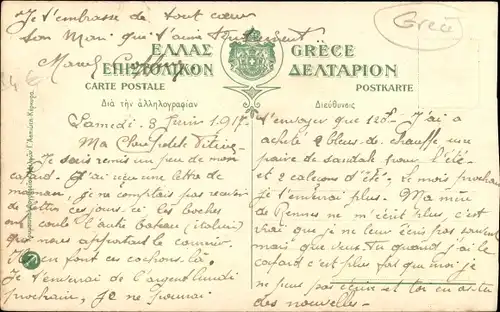 Je t'embrasse de tout coeur
ton Mari qui t'aime
Marcel
Grèce
ΕΛΛΑΣ GRÈCE
ΕΠΙΣΤΟΛΙΚΟΝ ΔΕΛΤΑΡΙΟΝ
CARTE POSTALE POSTKARTE
Διὰ τὴν ἀλληλογραφίαν Διεύθυνσις
Samedi 8 Juin 1917
Ma Chère petite
Je suis remis un peu de mon
cafard. J'ai reçu une lettre de
maman, je ne comptais pas recevoir
de lettres ces jours ici les boches
ont coulé l'autre bateau (italien)
qui nous apportait le courrier.
en font ces cochons là.
Je t'enverrai de l'argent lundi
prochain, je ne pourrai
t'envoyer que 120f. J'ai
acheté 2 bleus de chauffe une
paire de sandales pour l'été
et 2 caleçons d'été. Le mois prochain
je t'enverrai plus. Ma mère
de Rennes ne m'écrit plus, c'est
vrai que je ne leur écris pas souvent
mais que veux tu quand j'ai le
cafard c'est plus fort que moi je
ne peux pas écrire et toi as-tu
des nouvelles.